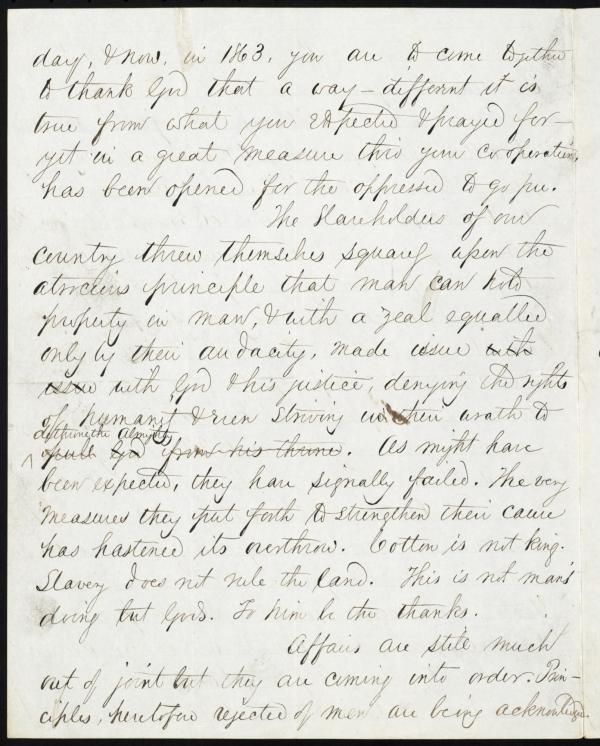 day, & now, in 1863, you are to come together
to thank God that a way - different it is
true from what you expected & prayed for -
yet in a great measure thro your co-operation,
has been opened for the oppressed to go free.
The Slaveholders of our
country threw themselves squarely upon the
atrocious principle that man can hold
property in man, & with a zeal equalled
only by their audacity, made issue with
issue with God & his justice, denying the rights
of humanity & even striving in their wrath to
dethrone the Almighty
^ God from his throne. As might have
been expected, they have signally failed. The very
measures they put forth to strengthen their cause
has hastened its overthrow. Cotton is not King.
Slavery does not rule the land. This is not man's
doing but God's. To him be the thanks.
Affairs are still much
out of joint but they are coming into order. Prin-
ciples, heretofore rejected of men are being acknowledged.